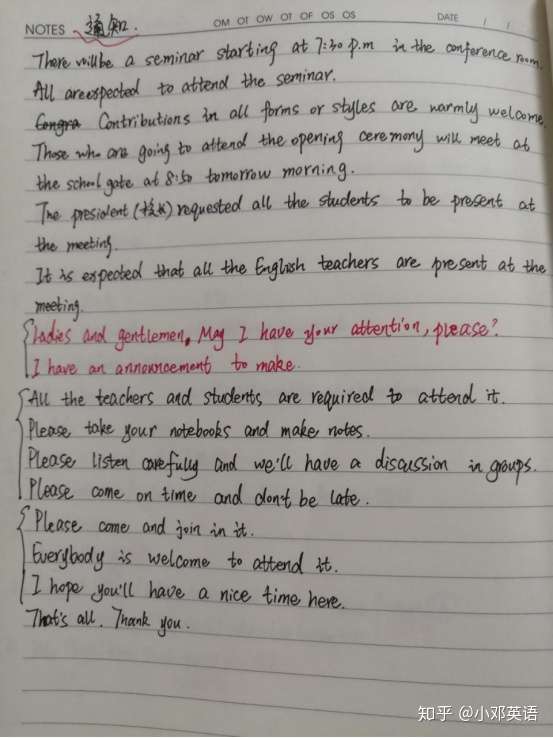 NOTES 通知. OM OT OW OT OF OS OS DATE / /
There will be a seminar starting at 7:30 p.m in the conference room.
All are expected to attend the seminar.
Congra Contributions in all forms or styles are warmly welcome
Those who are going to attend the opening ceremony will meet at
the school gate at 8:50 tomorrow morning.
The president (校长) requested all the students to be present at
the meeting.
It is expected that all the English teachers are present at the
meeting.
Ladies and gentlemen, May I have your attention, please?
I have an announcement to make.
All the teachers and students are required to attend it.
Please take your notebooks and make notes.
Please listen carefully and we'll have a discussion in groups.
Please come on time and don't be late.
Please come and join in it.
Everybody is welcome to attend it.
I hope you'll have a nice time here.
That's all. Thank you.
知乎 @小邓英语